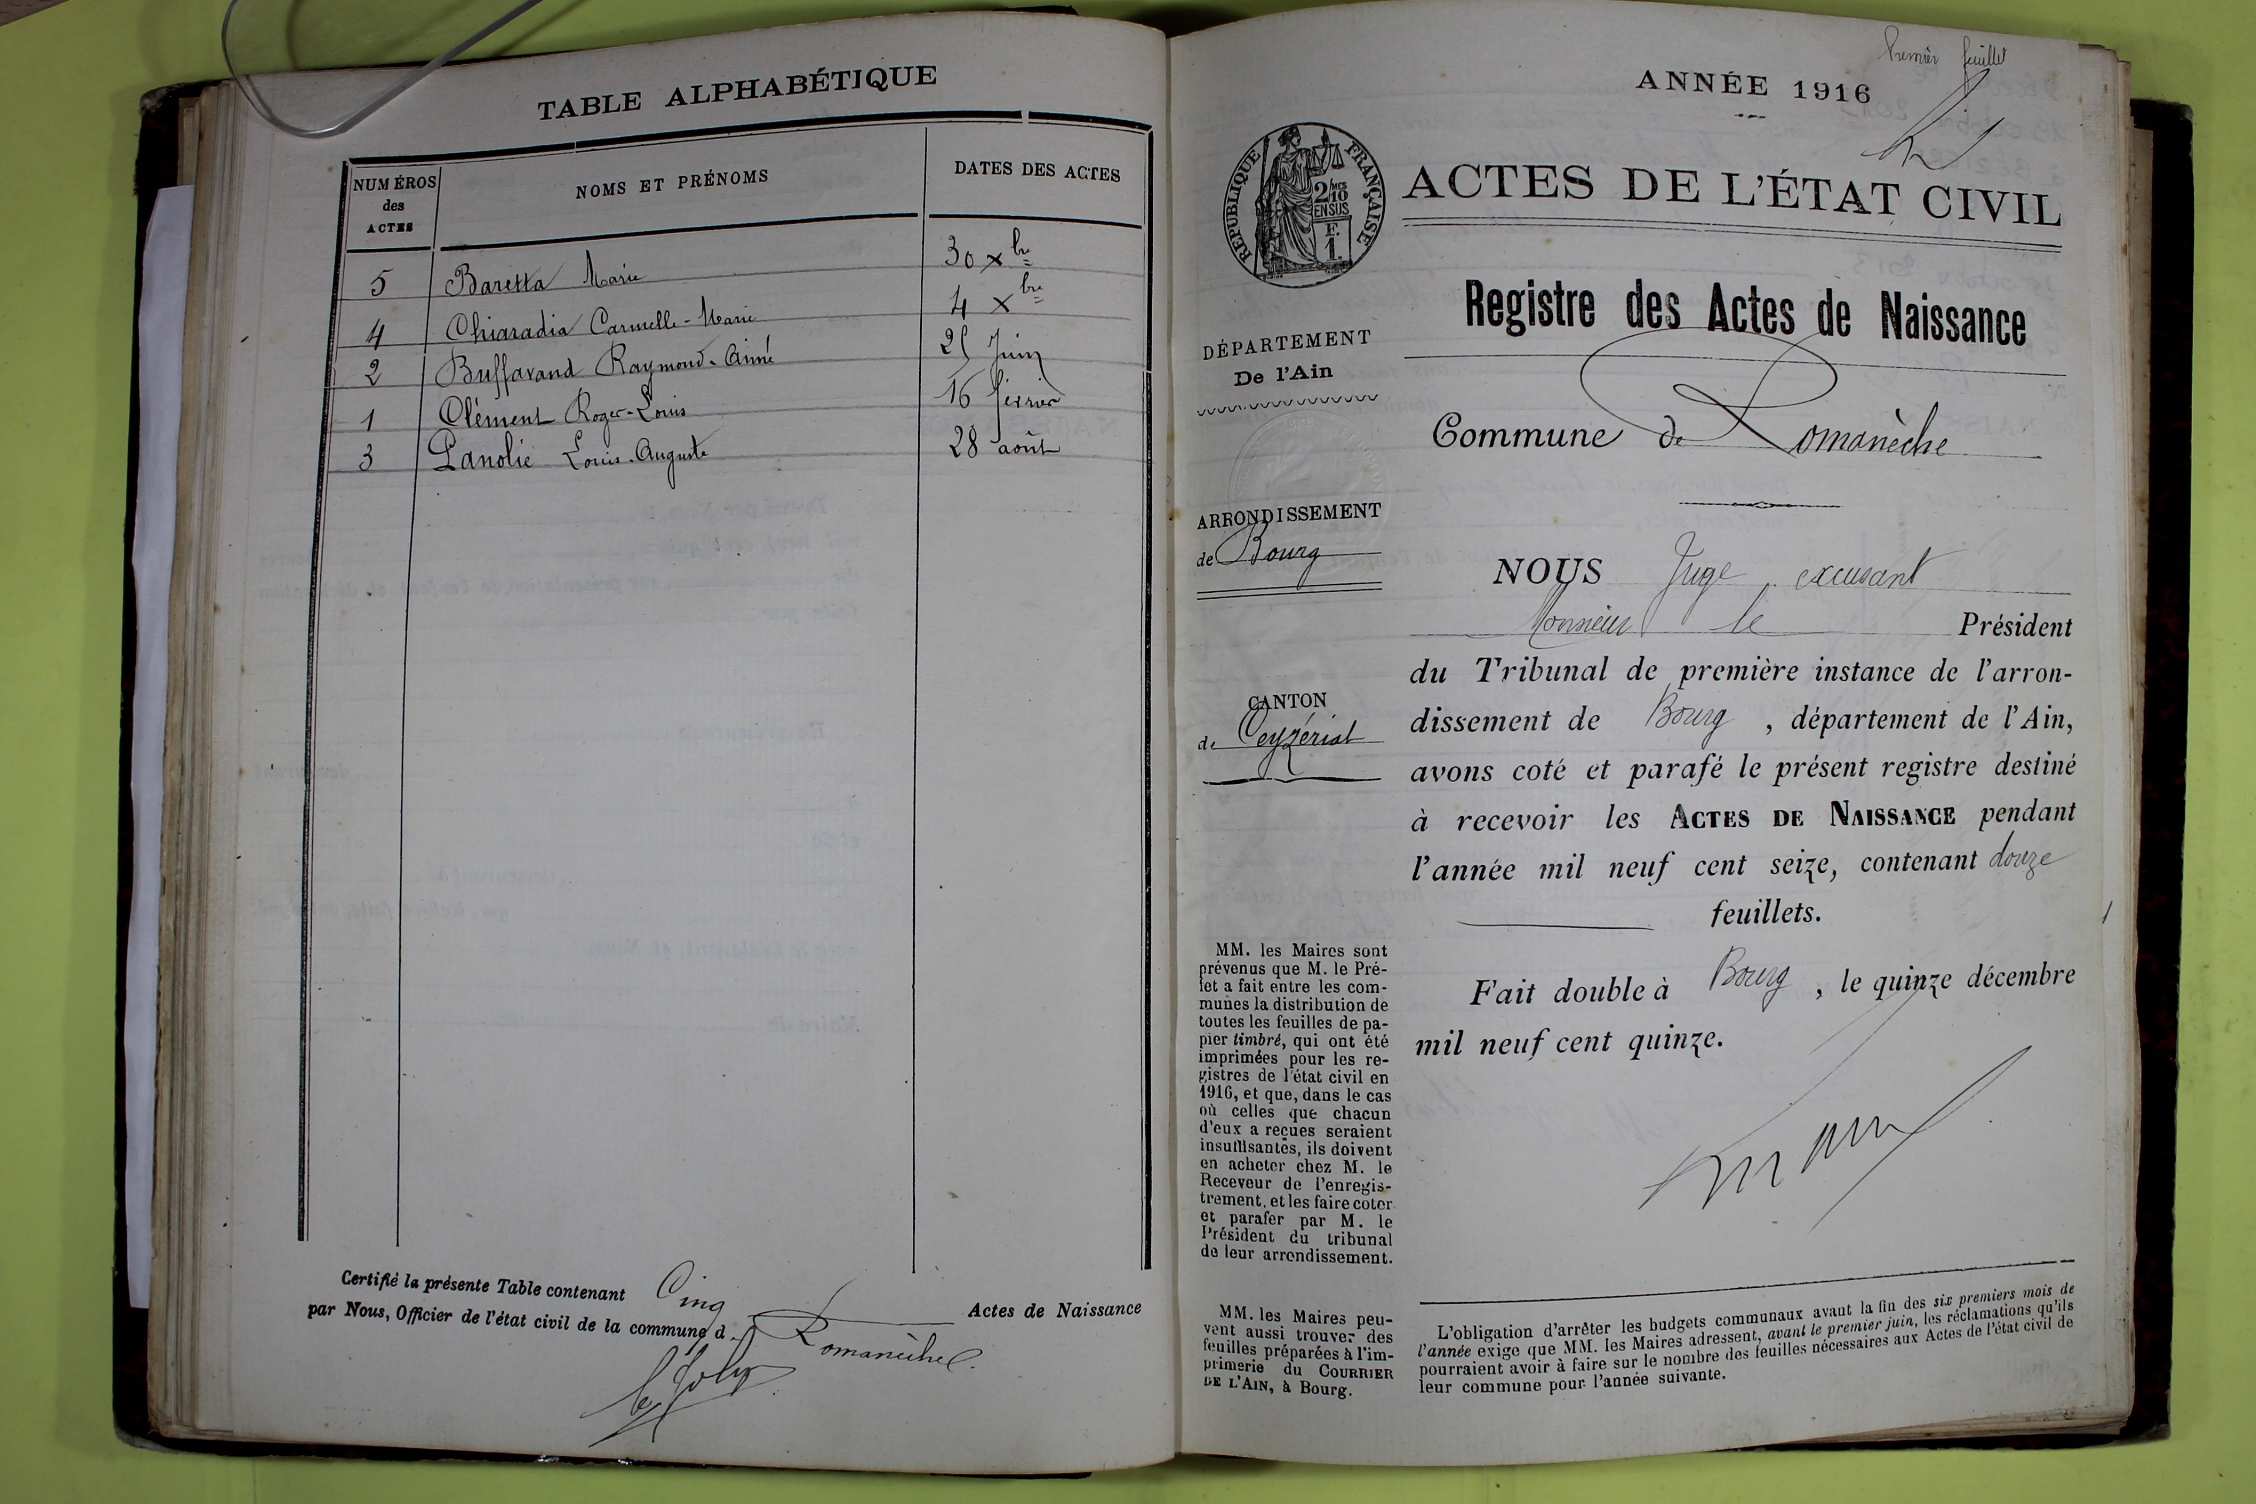 TABLE ALPHABÉTIQUE
NUMÉROS des ACTES
NOMS ET PRÉNOMS
DATES DES ACTES
5 Baretta Marie 30 Xbre
4 Chiaradia Carmelle-Marie 4 Xbre
2 Buffavand Raymond-Aimé 25 Juin
1 Clément Roger-Louis 16 février
3 Panolie Louis-Auguste 28 août
Certifié la présente Table contenant Cinq Actes de Naissance
par Nous, Officier de l'état civil de la commune d Romanèche
Joly
Premier feuillet
ANNÉE 1916
RÉPUBLIQUE FRANÇAISE
2/10
EN SUS
F.
1.
ACTES DE L'ÉTAT CIVIL
Registre des Actes de Naissance
DÉPARTEMENT
De l'Ain
Commune de Romanèche
ARRONDISSEMENT
de Bourg
CANTON
de Ceyzériat
NOUS Juge excusant
Monsieur le Président
du Tribunal de première instance de l'arron-
dissement de Bourg, département de l'Ain,
avons coté et parafé le présent registre destiné
à recevoir les ACTES DE NAISSANCE pendant
l'année mil neuf cent seize, contenant douze
feuillets.
Fait double à Bourg, le quinze décembre
mil neuf cent quinze.
MM. les Maires sont
prévenus que M. le Pré-
fet a fait entre les com-
munes la distribution de
toutes les feuilles de pa-
pier timbré, qui ont été
imprimées pour les re-
gistres de l'état civil en
1916, et que, dans le cas
où celles que chacun
d'eux a reçues seraient
insuffisantes, ils doivent
en acheter chez M. le
Receveur de l'enregis-
trement, et les faire coter
et parafer par M. le
Président du tribunal
de leur arrondissement.
MM. les Maires peu-
vent aussi trouver des
feuilles préparées à l'im-
primerie du COURRIER
DE L'AIN, à Bourg.
L'obligation d'arrêter les budgets communaux avant la fin des six premiers mois de
l'année exige que MM. les Maires adressent, avant le premier juin, les réclamations qu'ils
pourraient avoir à faire sur le nombre des feuilles nécessaires aux Actes de l'état civil de
leur commune pour l'année suivante.